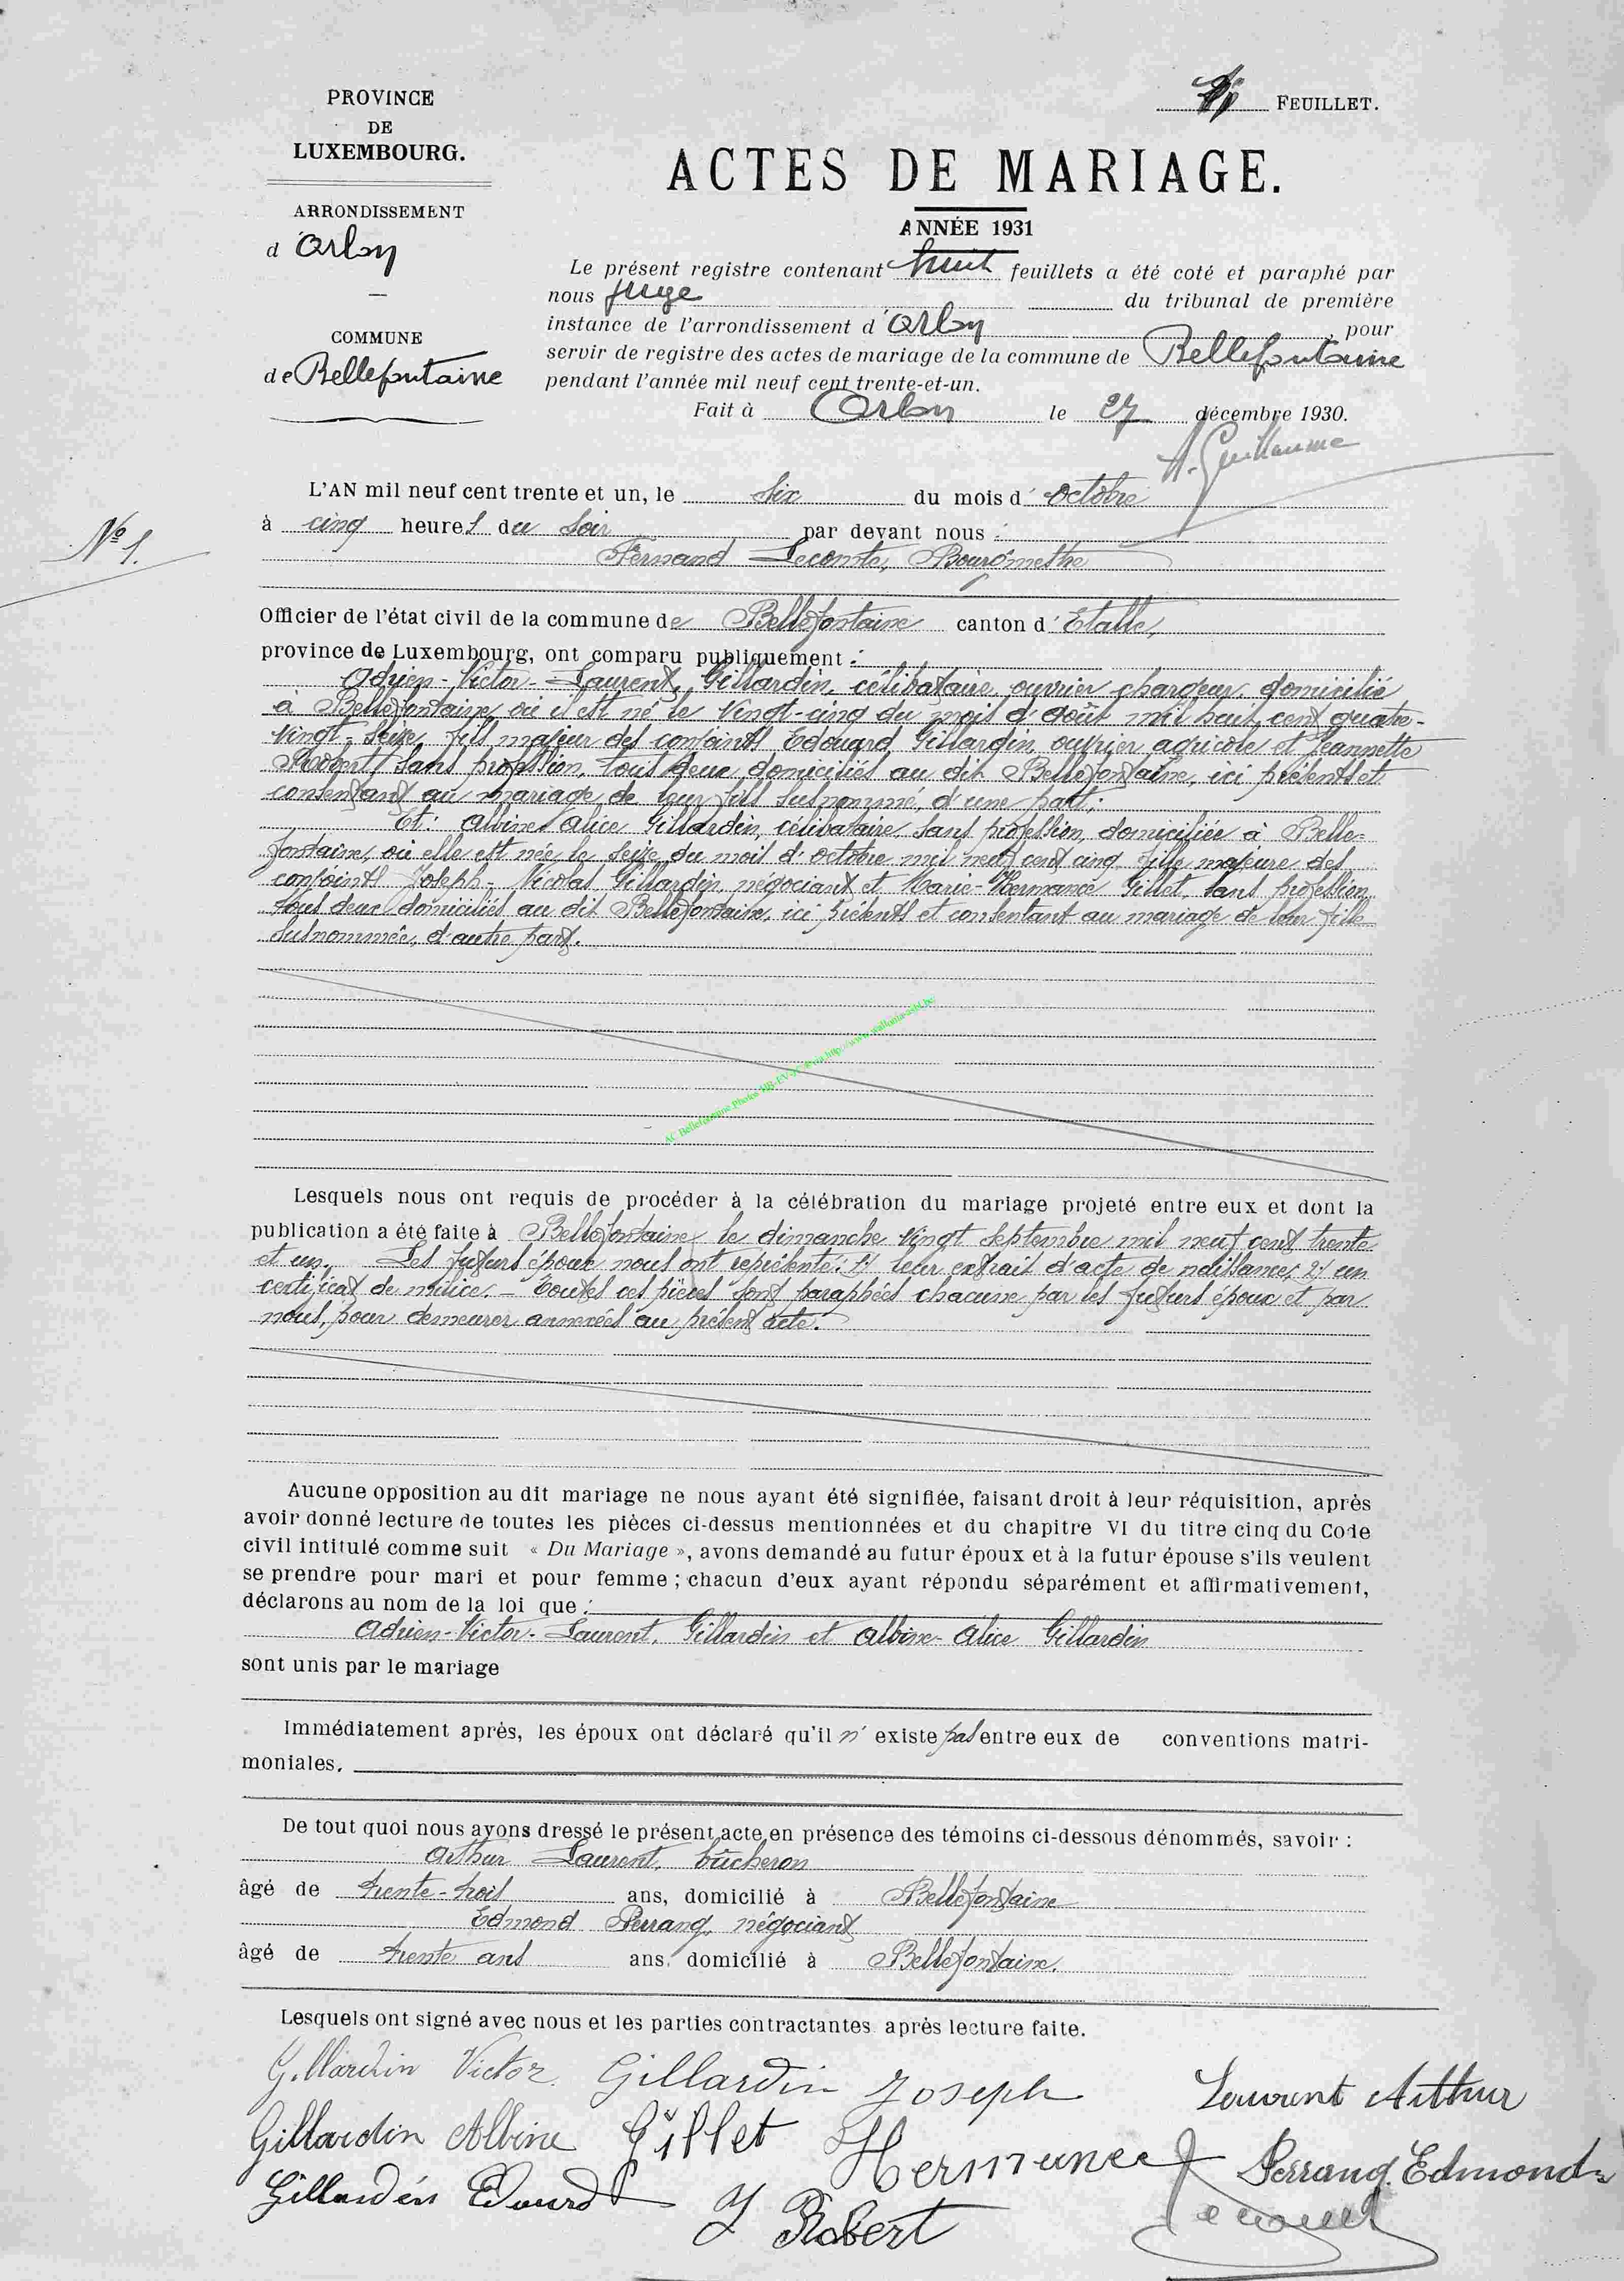 PROVINCE
DE
LUXEMBOURG.
ARRONDISSEMENT
d'Arlon
COMMUNE
de Bellefontaine
FEUILLET.
ACTES DE MARIAGE.
ANNÉE 1931
Le présent registre contenant huit feuillets a été coté et paraphé par
nous juge du tribunal de première
instance de l'arrondissement d'Arlon pour
servir de registre des actes de mariage de la commune de Bellefontaine
pendant l'année mil neuf cent trente-et-un.
Fait à Arlon le 27 décembre 1930.
A. Guillaume
N° 1.
L'AN mil neuf cent trente et un, le six du mois d'octobre
à cinq heures du soir par devant nous :
Fernand Lecomte, Bourgmestre
Officier de l'état civil de la commune de Bellefontaine canton d'Etalle,
province de Luxembourg, ont comparu publiquement :
Adrien-Victor-Laurent, Gillardin, célibataire, ouvrier chargeur, domicilié
à Bellefontaine, où il est né le vingt-cinq du mois d'août mil huit cent quatre-
vingt-seize, fils majeur des conjoints Edouard Gillardin, ouvrier agricole et Jeannette
Robert, sans profession, tous deux domiciliés au dit Bellefontaine, ici présents et
consentant au mariage de leur fils susnommé, d'une part;
Et: Albine Alice Gillardin, célibataire, sans profession, domiciliée à Belle-
fontaine, où elle est née le seize du mois d'octobre mil neuf cent cinq, fille majeure des
conjoints Joseph-Nicolas Gillardin, négociant et Marie-Hermance Gillet, sans profession,
tous deux domiciliés au dit Bellefontaine, ici présents et consentant au mariage de leur fille
susnommée, d'autre part.
AC Bellefontaine Photos HB-EV-JC-P via http://www.wallonia-asbl.be
Lesquels nous ont requis de procéder à la célébration du mariage projeté entre eux et dont la
publication a été faite à Bellefontaine, le dimanche vingt septembre mil neuf cent trente
et un. Les futurs époux nous ont représenté: 1) leur extrait d'acte de naissance, 2) un
certificat de milice. - Toutes ces pièces sont paraphées chacune par les futurs époux et par
nous, pour demeurer annexées au présent acte.
Aucune opposition au dit mariage ne nous ayant été signifiée, faisant droit à leur réquisition, après
avoir donné lecture de toutes les pièces ci-dessus mentionnées et du chapitre VI du titre cinq du Code
civil intitulé comme suit « Du Mariage », avons demandé au futur époux et à la futur épouse s'ils veulent
se prendre pour mari et pour femme ; chacun d'eux ayant répondu séparément et affirmativement,
déclarons au nom de la loi que :
Adrien-Victor-Laurent, Gillardin et Albine-Alice Gillardin
sont unis par le mariage
Immédiatement après, les époux ont déclaré qu'il n'existe pas entre eux de conventions matri-
moniales.
De tout quoi nous avons dressé le présent acte en présence des témoins ci-dessous dénommés, savoir :
Arthur Laurent, bûcheron
âgé de trente-trois ans, domicilié à Bellefontaine
Edmond Perrang, négociant
âgé de trente ans ans, domicilié à Bellefontaine.
Lesquels ont signé avec nous et les parties contractantes après lecture faite.
Gillardin Victor Gillardin Joseph Laurent Arthur
Gillardin Albine Gillet Hermance Perrang Edmond
Gillardin Edouard J Robert Lecomte